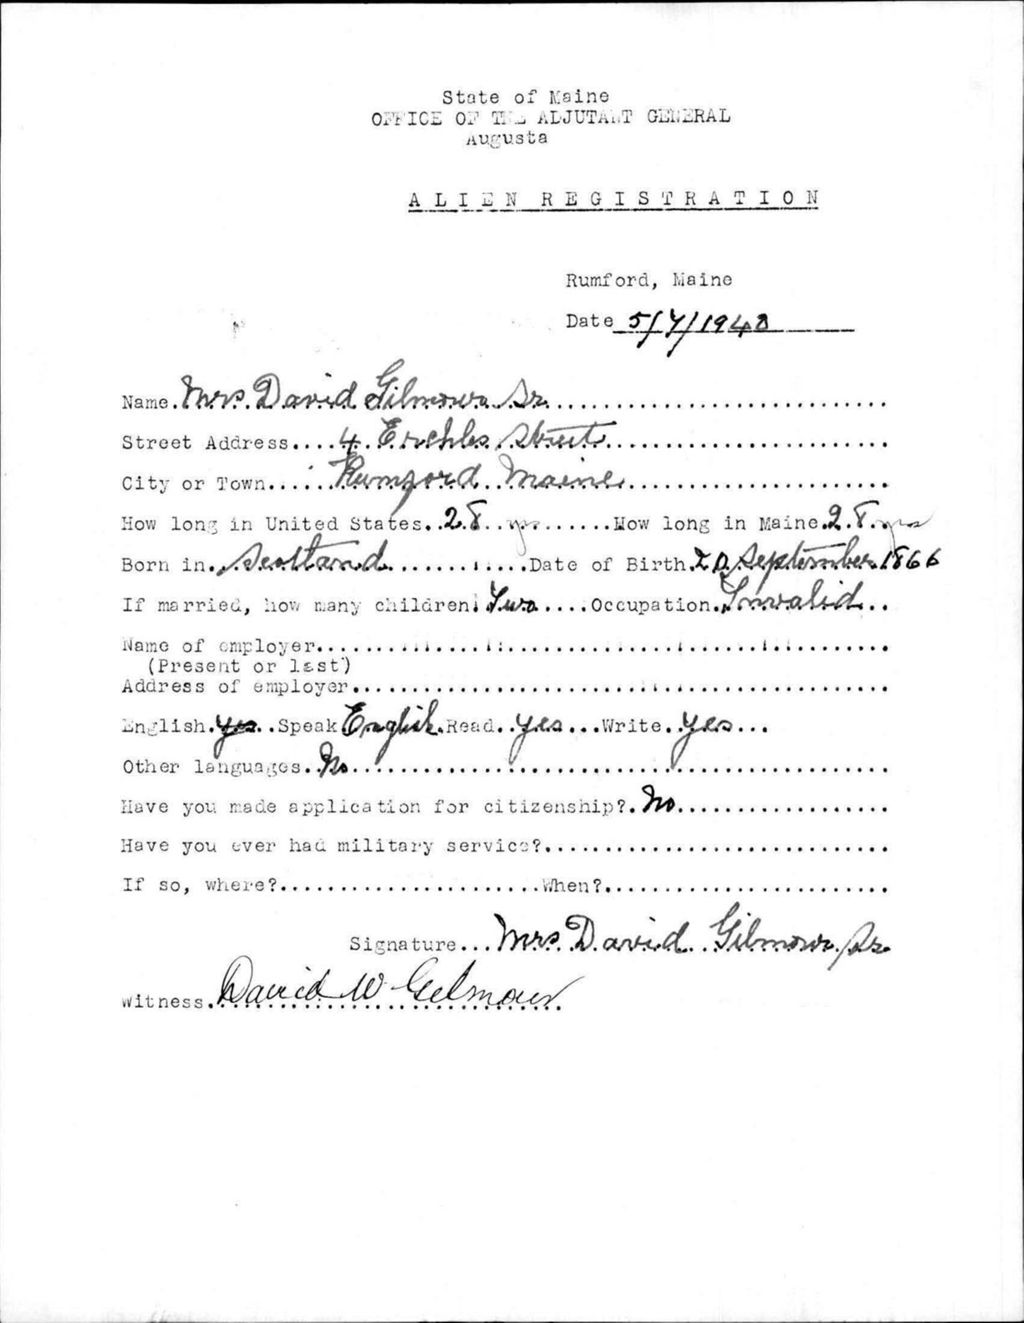 State of Maine
OFFICE OF THE ADJUTANT GENERAL
Augusta
ALIEN REGISTRATION
Rumford, Maine
Date 5/7/1940
Name. Mrs. David Gilmour Sr.
Street Address.... 4 Erchles Street
City or Town...... Rumford Maine
How long in United States.. 28 yrs .......How long in Maine. 28 yrs
Born in. Scotland ...........Date of Birth. 20 September 1866
If married, how many children. Two ....Occupation. Invalid ..
Name of employer
(Present or last)
Address of employer
English. yes ..Speak English .Read.. yes ...Write.. yes ...
Other languages.. No
Have you made application for citizenship?. No
Have you ever had military service?
If so, where?.......................When?
Signature... Mrs. David Gilmour Sr.
Witness. David W Gilmour